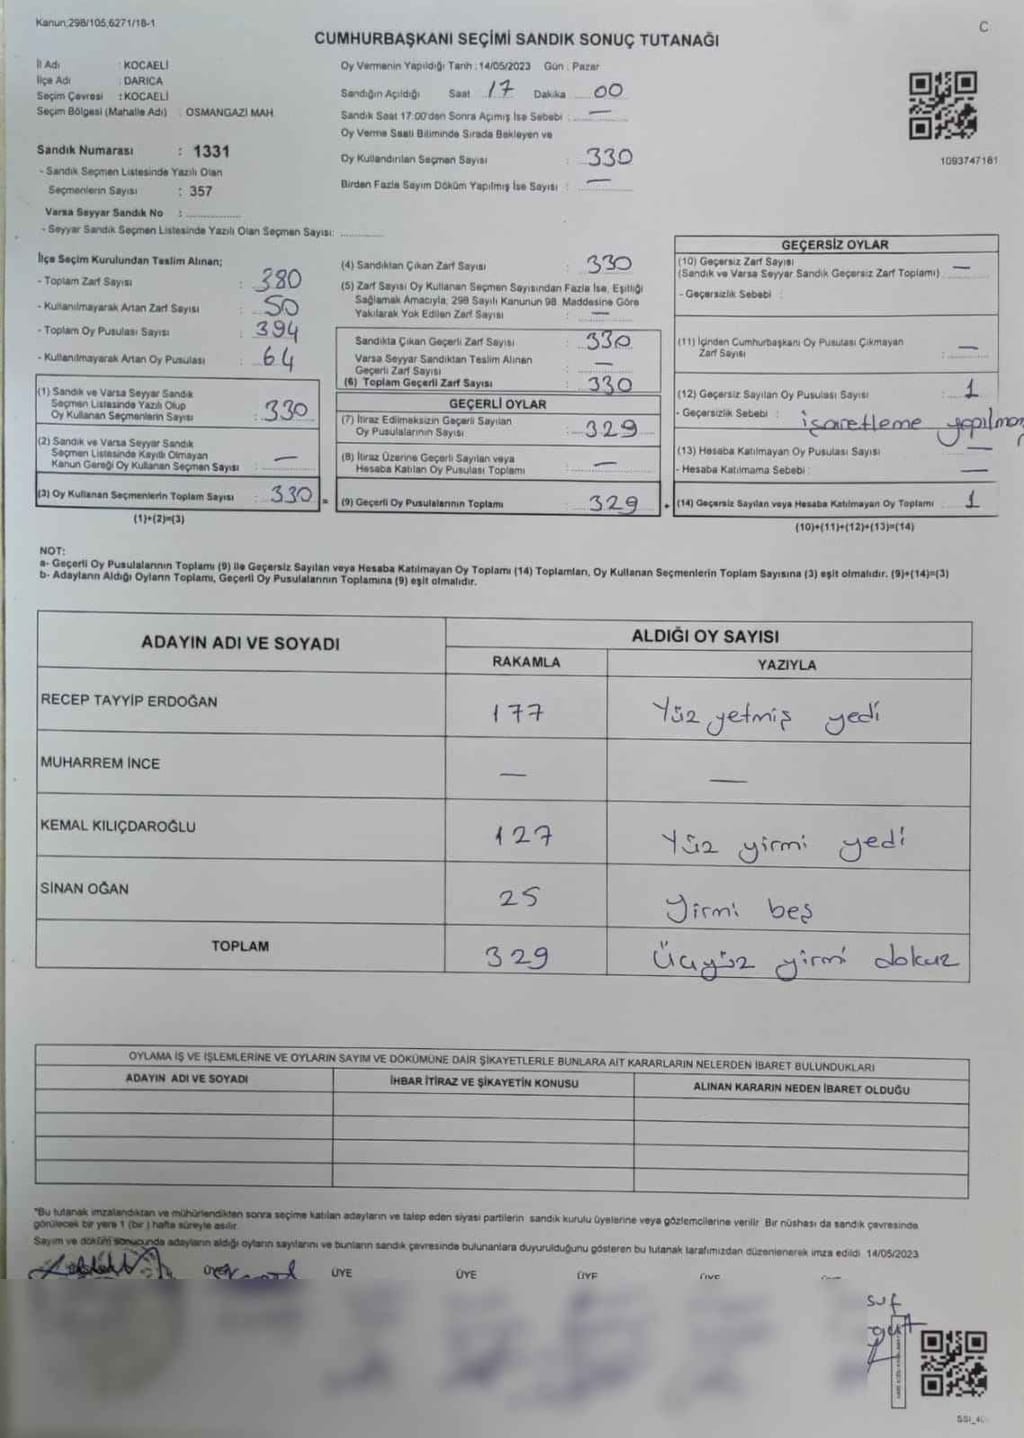 Kanun:298/105,6271/18-1
C
CUMHURBAŞKANI SEÇİMİ SANDIK SONUÇ TUTANAĞI
İl Adı : KOCAELİ
İlçe Adı : DARICA
Seçim Çevresi : KOCAELİ
Seçim Bölgesi (Mahalle Adı) : OSMANGAZİ MAH.
Sandık Numarası : 1331
- Sandık Seçmen Listesinde Yazılı Olan
Seçmenlerin Sayısı : 357
Varsa Seyyar Sandık No :
- Seyyar Sandık Seçmen Listesinde Yazılı Olan Seçmen Sayısı:
Oy Vermenin Yapıldığı Tarih : 14/05/2023 Gün : Pazar
Sandığın Açıldığı Saat 17 Dakika 00
Sandık Saat 17:00'den Sonra Açılmış İse Sebebi : —
Oy Verme Saati Bitiminde Sırada Bekleyen ve
Oy Kullandırılan Seçmen Sayısı : 330
Birden Fazla Sayım Döküm Yapılmış İse Sayısı : —
1093747161
İlçe Seçim Kurulundan Teslim Alınan;
- Toplam Zarf Sayısı : 380
- Kullanılmayarak Artan Zarf Sayısı : 50
- Toplam Oy Pusulası Sayısı : 394
- Kullanılmayarak Artan Oy Pusulası : 64
(1) Sandık ve Varsa Seyyar Sandık
Seçmen Listesinde Yazılı Olup
Oy Kullanan Seçmenlerin Sayısı : 330
(2) Sandık ve Varsa Seyyar Sandık
Seçmen Listesinde Kayıtlı Olmayan
Kanun Gereği Oy Kullanan Seçmen Sayısı : —
(3) Oy Kullanan Seçmenlerin Toplam Sayısı : 330 =
(1)+(2)=(3)
(4) Sandıktan Çıkan Zarf Sayısı : 330
(5) Zarf Sayısı Oy Kullanan Seçmen Sayısından Fazla İse, Eşitliği
Sağlamak Amacıyla, 298 Sayılı Kanunun 98. Maddesine Göre
Yakılarak Yok Edilen Zarf Sayısı : —
Sandıkta Çıkan Geçerli Zarf Sayısı : 330
Varsa Seyyar Sandıktan Teslim Alınan
Geçerli Zarf Sayısı : —
(6) Toplam Geçerli Zarf Sayısı : 330
GEÇERLİ OYLAR
(7) İtiraz Edilmeksizin Geçerli Sayılan
Oy Pusulalarının Sayısı : 329
(8) İtiraz Üzerine Geçerli Sayılan veya
Hesaba Katılan Oy Pusulası Toplamı : —
(9) Geçerli Oy Pusulalarının Toplamı : 329 +
GEÇERSİZ OYLAR
(10) Geçersiz Zarf Sayısı
(Sandık ve Varsa Seyyar Sandık Geçersiz Zarf Toplamı) : —
- Geçersizlik Sebebi :
(11) İçinden Cumhurbaşkanı Oy Pusulası Çıkmayan
Zarf Sayısı : —
(12) Geçersiz Sayılan Oy Pusulası Sayısı : 1
- Geçersizlik Sebebi : işaretleme
(13) Hesaba Katılmayan Oy Pusulası Sayısı : —
- Hesaba Katılmama Sebebi : —
(14) Geçersiz Sayılan veya Hesaba Katılmayan Oy Toplamı : 1
(10)+(11)+(12)+(13)=(14)
NOT:
a- Geçerli Oy Pusulalarının Toplamı (9) ile Geçersiz Sayılan veya Hesaba Katılmayan Oy Toplamı (14) Toplamları, Oy Kullanan Seçmenlerin Toplam Sayısına (3) eşit olmalıdır. (9)+(14)=(3)
b- Adayların Aldığı Oyların Toplamı, Geçerli Oy Pusulalarının Toplamına (9) eşit olmalıdır.
ADAYIN ADI VE SOYADI ALDIĞI OY SAYISI
RAKAMLA YAZIYLA
RECEP TAYYİP ERDOĞAN 177 Yüz yetmiş yedi
MUHARREM İNCE — —
KEMAL KILIÇDAROĞLU 127 Yüz yirmi yedi
SİNAN OĞAN 25 Yirmi beş
TOPLAM 329 Üçyüz yirmi dokuz
OYLAMA İŞ VE İŞLEMLERİNE VE OYLARIN SAYIM VE DÖKÜMÜNE DAİR ŞİKAYETLERLE BUNLARA AİT KARARLARIN NELERDEN İBARET BULUNDUKLARI
ADAYIN ADI VE SOYADI İHBAR İTİRAZ VE ŞİKAYETİN KONUSU ALINAN KARARIN NEDEN İBARET OLDUĞU
*Bu tutanak imzalandıktan ve mühürlendikten sonra seçime katılan adayların ve talep eden siyasi partilerin sandık kurulu üyelerine veya gözlemcilerine verilir. Bir nüshası da sandık çevresinde
görülecek bir yere 1 (bir) hafta süreyle asılır.
Sayım ve döküm sonucunda adayların aldığı oyların sayılarını ve bunların sandık çevresinde bulunanlara duyurulduğunu gösteren bu tutanak tarafımızdan düzenlenerek imza edildi. 14/05/2023
ÜYE ÜYE ÜYE ÜYE